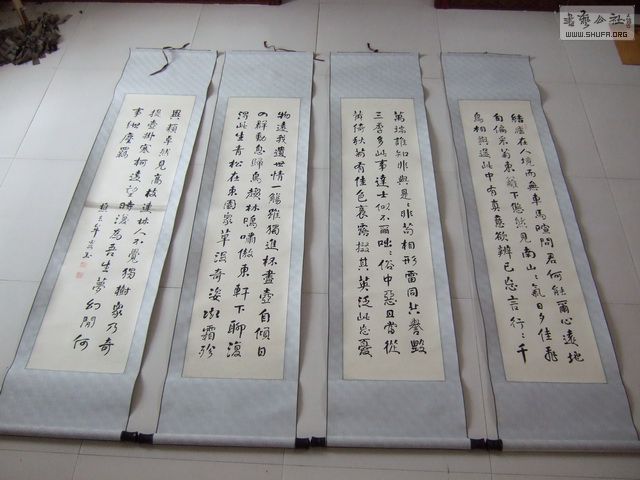 書藝公社
WWW.SHUFA.ORG
結廬在人境而無車馬喧問君何能爾心遠地
自偏采菊東籬下悠然見南山々氣日夕佳飛
鳥相與還此中有真意欲辨已忘言行止千
萬端誰知非與是々非苟相形雷同共譽毀
三季多此事達士似不爾咄々俗中惡且當從
黃綺秋菊有佳色裛露掇其英泛此忘憂
物遠我遺世情一觴雖獨進杯盡壺自傾日
入群動息歸鳥趨林鳴嘯傲東軒下聊復
得此生青松在東園眾草沒奇姿凝霜殄
異類卓然見高枝連林人不覺獨樹眾乃奇
提壺掛寒柯遠望時復為吾生夢幻間何
事紲塵羈